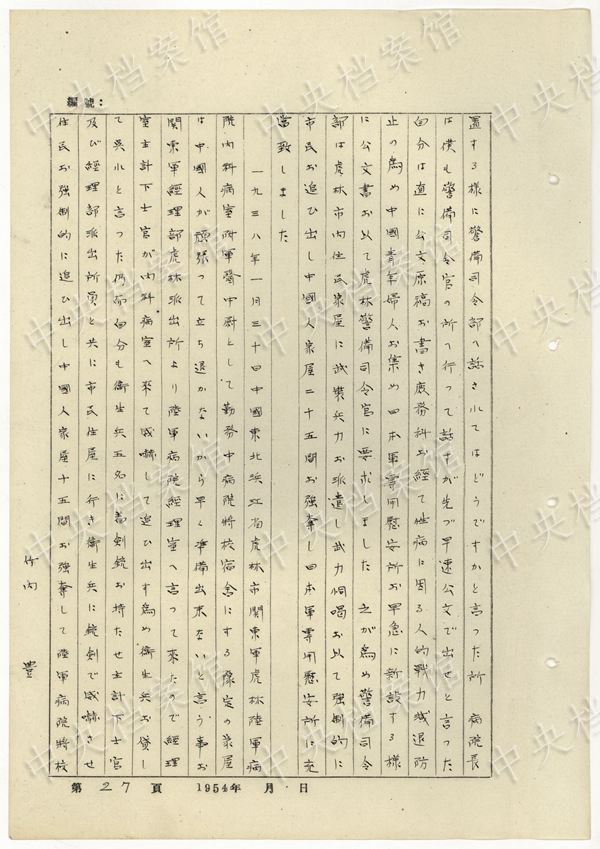 編號：
置する様に警備司令部へ話されてはどうですかと言った所 病院長
は僕も警備司令官の所へ行って話すが先づ早速公文で出せと言った
自分は直に公文原稿お書き庶務科お経て性病に因る人的戦力減退防
止の為め中國青年婦人お集め日本軍専用慰安所お早急に新設する様
に公文書お以て虎林警備司令官に要求しました 之が為め警備司令
部は虎林市内住民家屋に武装兵力お派遣し武力恫喝お以て強制的に
市民お追ひ出し中國人家屋二十五間お強奪し日本軍専用慰安所に充
当致しました
一九三八年一月三十日中國東北浜江省虎林市関東軍虎林陸軍病
院内科病室附軍醫中尉として勤務中病院将校宿舎にする豫定の家屋
は中國人が頑張って立ち退かないから早く準備出来ないと言う事お
関東軍経理部虎林派出所より陸軍病院経理室へ言って来たので経理
室主計下士官が内科病室へ来て威嚇して追ひ出す為め衛生兵お貸し
て呉れと言った仍而自分も衛生兵五名に着剣銃お持たせ主計下士官
及び経理部派出所員と共に市民住屋に行き衛生兵に銃剣で威嚇させ
住民お強制的に追ひ出し中國人家屋十五間お強奪して陸軍病院将校
竹内 豊
第 27 頁 1954年 月 日
中央档案馆